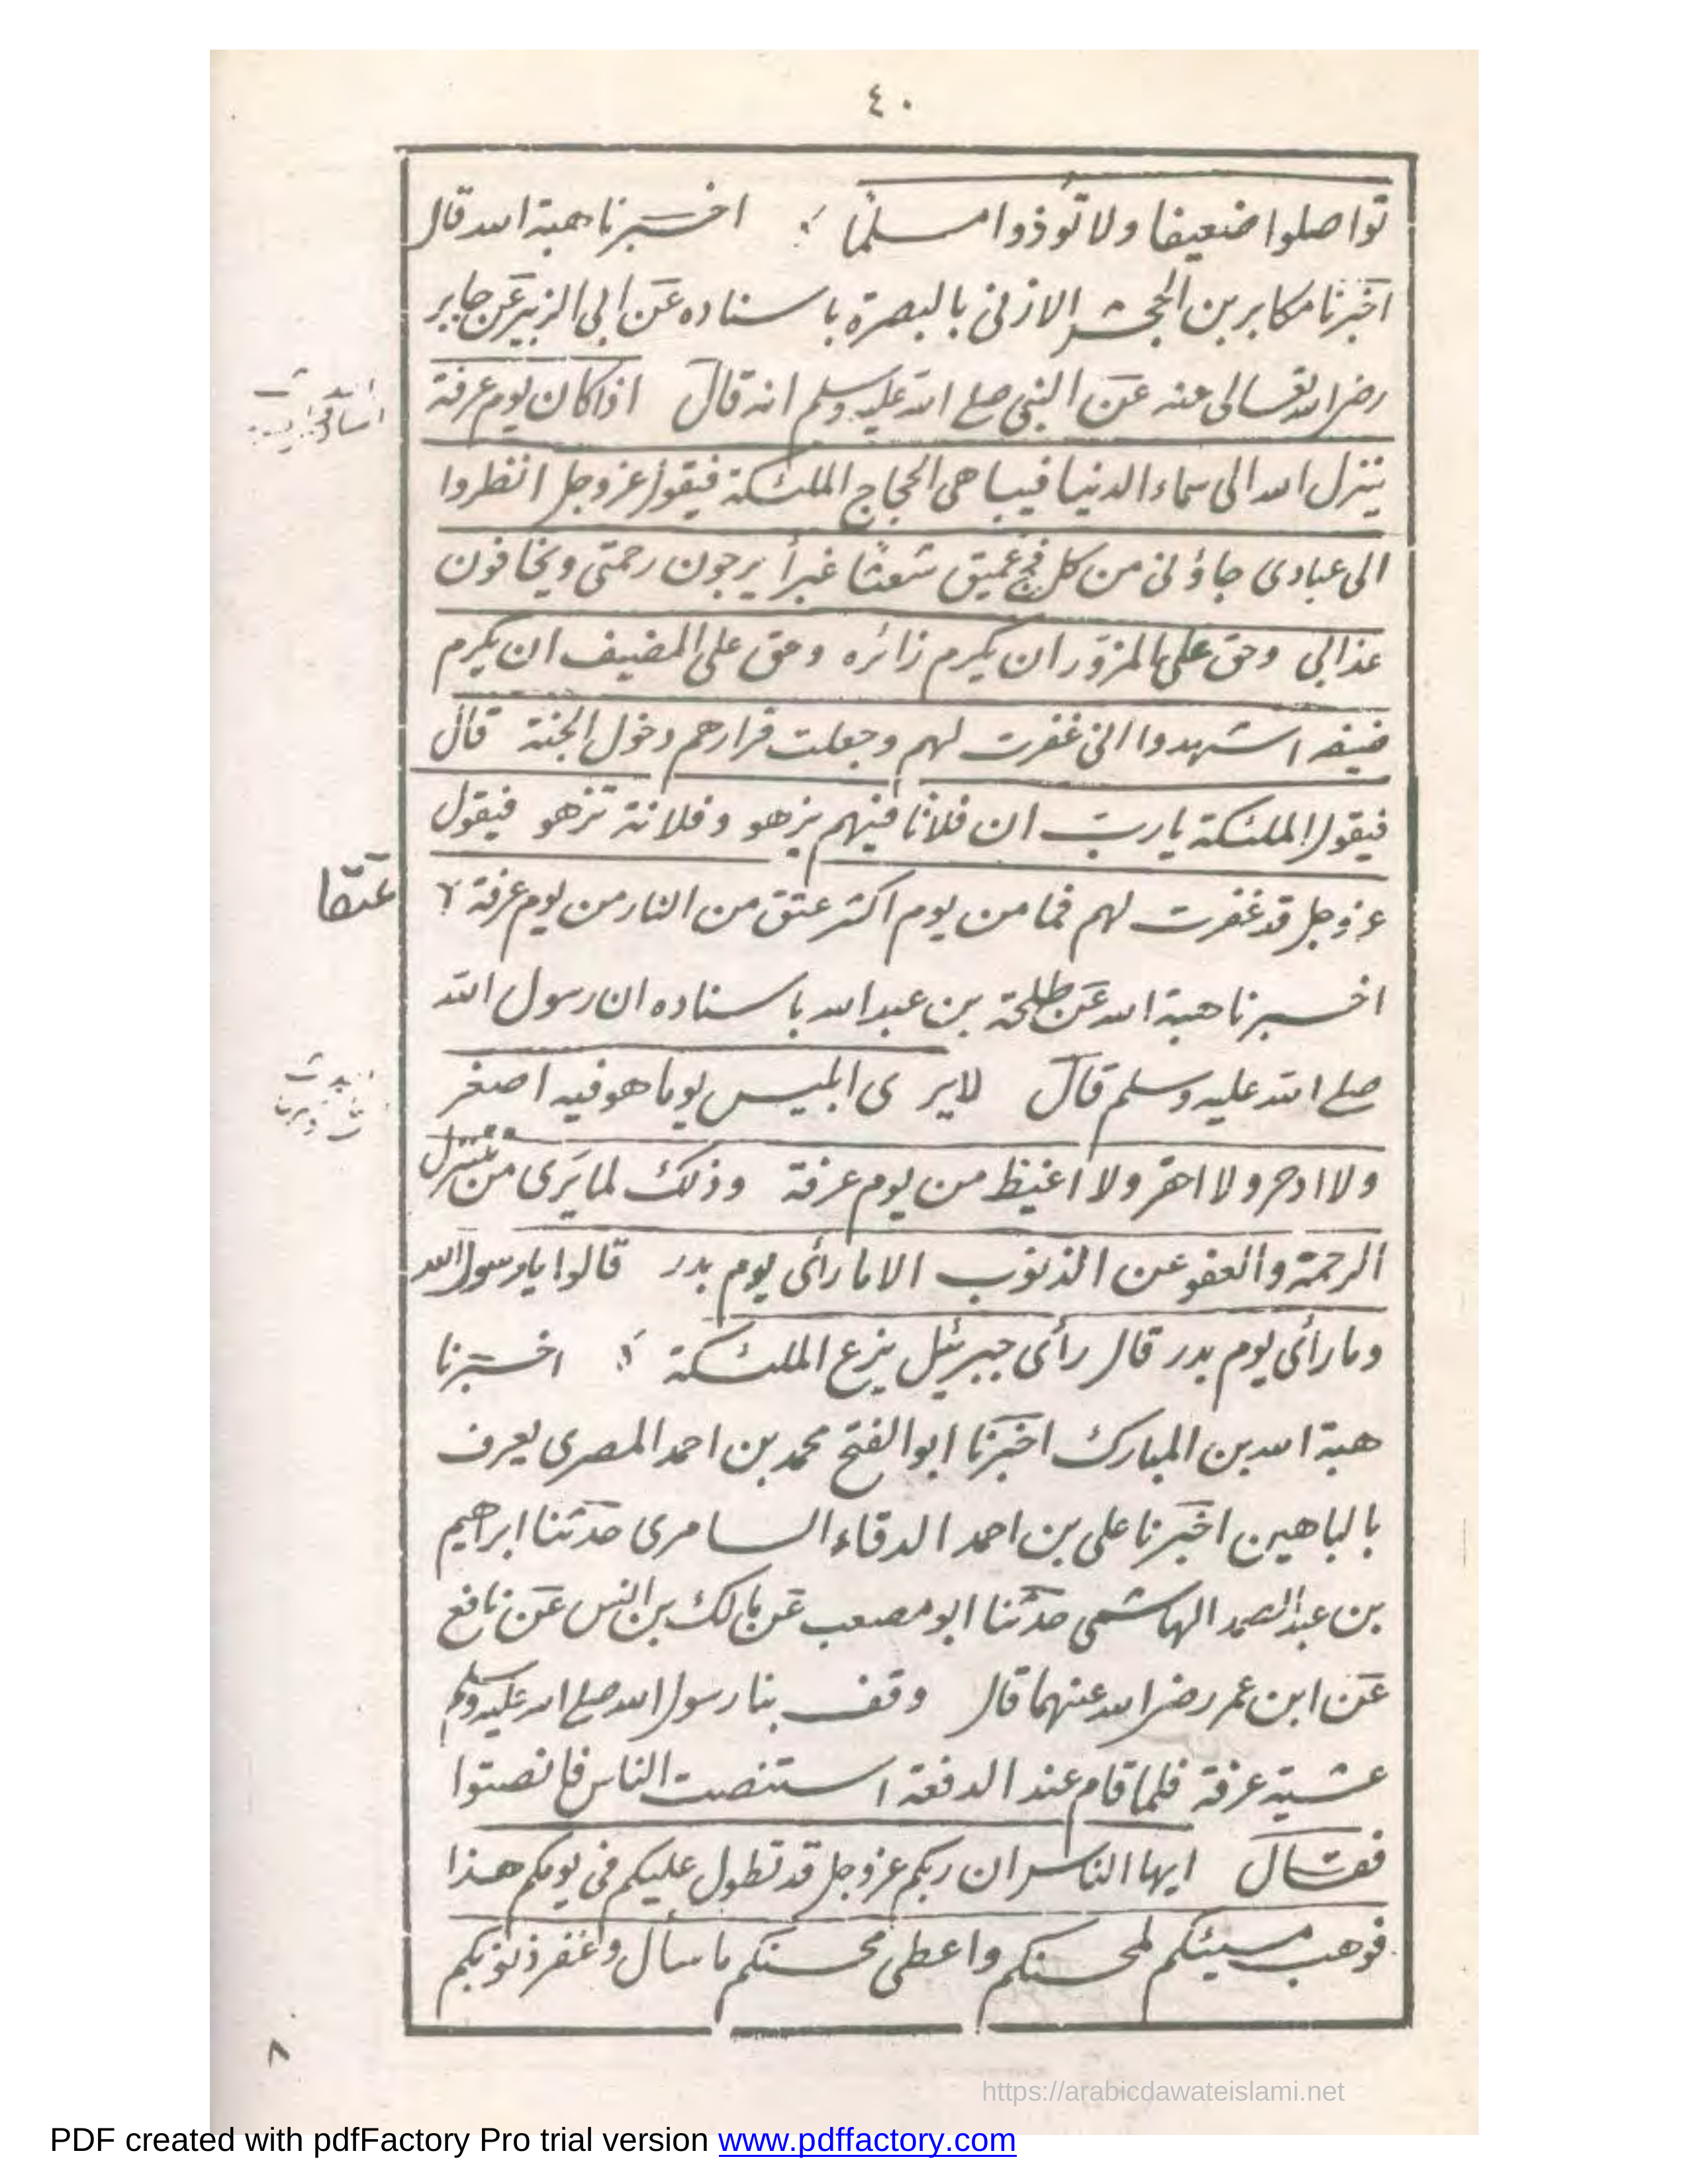 ٤٠
تواصلوا ضعيفا ولا تؤذوا مسلمًا اخبرنا هبة الله قال
اخبرنا مكابر بن الجحش الازنى بالبصرة باسناده عن ابى الزبير عن جابر
رضى الله تعالى عنه عن النبى صلى الله عليه وسلم انه قال اذا كان يوم عرفة
ينزل الله الى سماء الدنيا فيباهى الحجاج الملئكة فيقول عز وجل انظروا
الى عبادى جاؤنى من كل فج عميق شعثًا غبرا يرجون رحمتى ويخافون
عذابى وحق على المزور ان يكرم زائره وحق على المضيف ان يكرم
ضيفه اشهدوا انى غفرت لهم وجعلت قرارهم دخول الجنة قال
فيقول الملئكة يا رب ان فلانا فيهم يزهو وفلانة تزهو فيقول
عز وجل قد غفرت لهم فما من يوم اكثر عتق من النار من يوم عرفة
عتقا
اخبرنا هبة الله عن طلحة بن عبد الله باسناده ان رسول الله
صلى الله عليه وسلم قال لا يرى ابليس يوما هو فيه اصغر
ولا ادحر ولا احقر ولا اغيظ من يوم عرفة وذلك لما يرى من تنزل
الرحمة والعفو عن الذنوب الا ما رأى يوم بدر قالوا يا رسول الله
وما رأى يوم بدر قال رأى جبرئيل يزع الملئكة اخبرنا
هبة الله بن المبارك اخبرنا ابو الفتح محمد بن احمد المصرى يعرف
بالباهين اخبرنا على بن احمد الدقاء السامرى حدثنا ابراهيم
بن عبد الصمد الهاشمى حدثنا ابو مصعب عن مالك بن انس عن نافع
عن ابن عمر رضى الله عنهما قال وقف بنا رسول الله صلى الله عليه وسلم
عشية عرفة فلما قام عند الدفعة استنصت الناس فانصتوا
فقال ايها الناس ان ربكم عز وجل قد تطول عليكم فى يومكم هذا
فوهب مسيئكم لمحسنكم واعطى محسنكم ما سأل وغفر ذنوبكم
٨
https://arabicdawateislami.net
PDF created with pdfFactory Pro trial version www.pdffactory.com